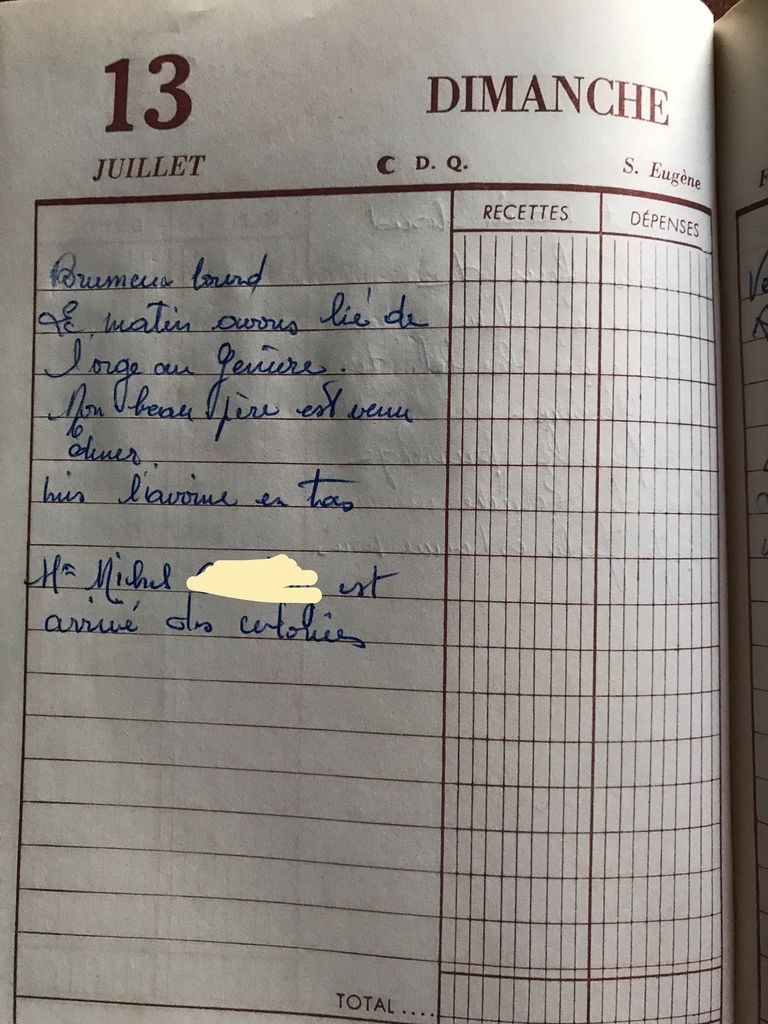 13
DIMANCHE
JUILLET
D. Q.
S. Eugène
RECETTES
DÉPENSES
Brumeux lourd
Le matin avons lié de
l'orge au
Mon beau père est venu
dîner.
l'avoine en tas
Michel est
arrivé des
TOTAL ....